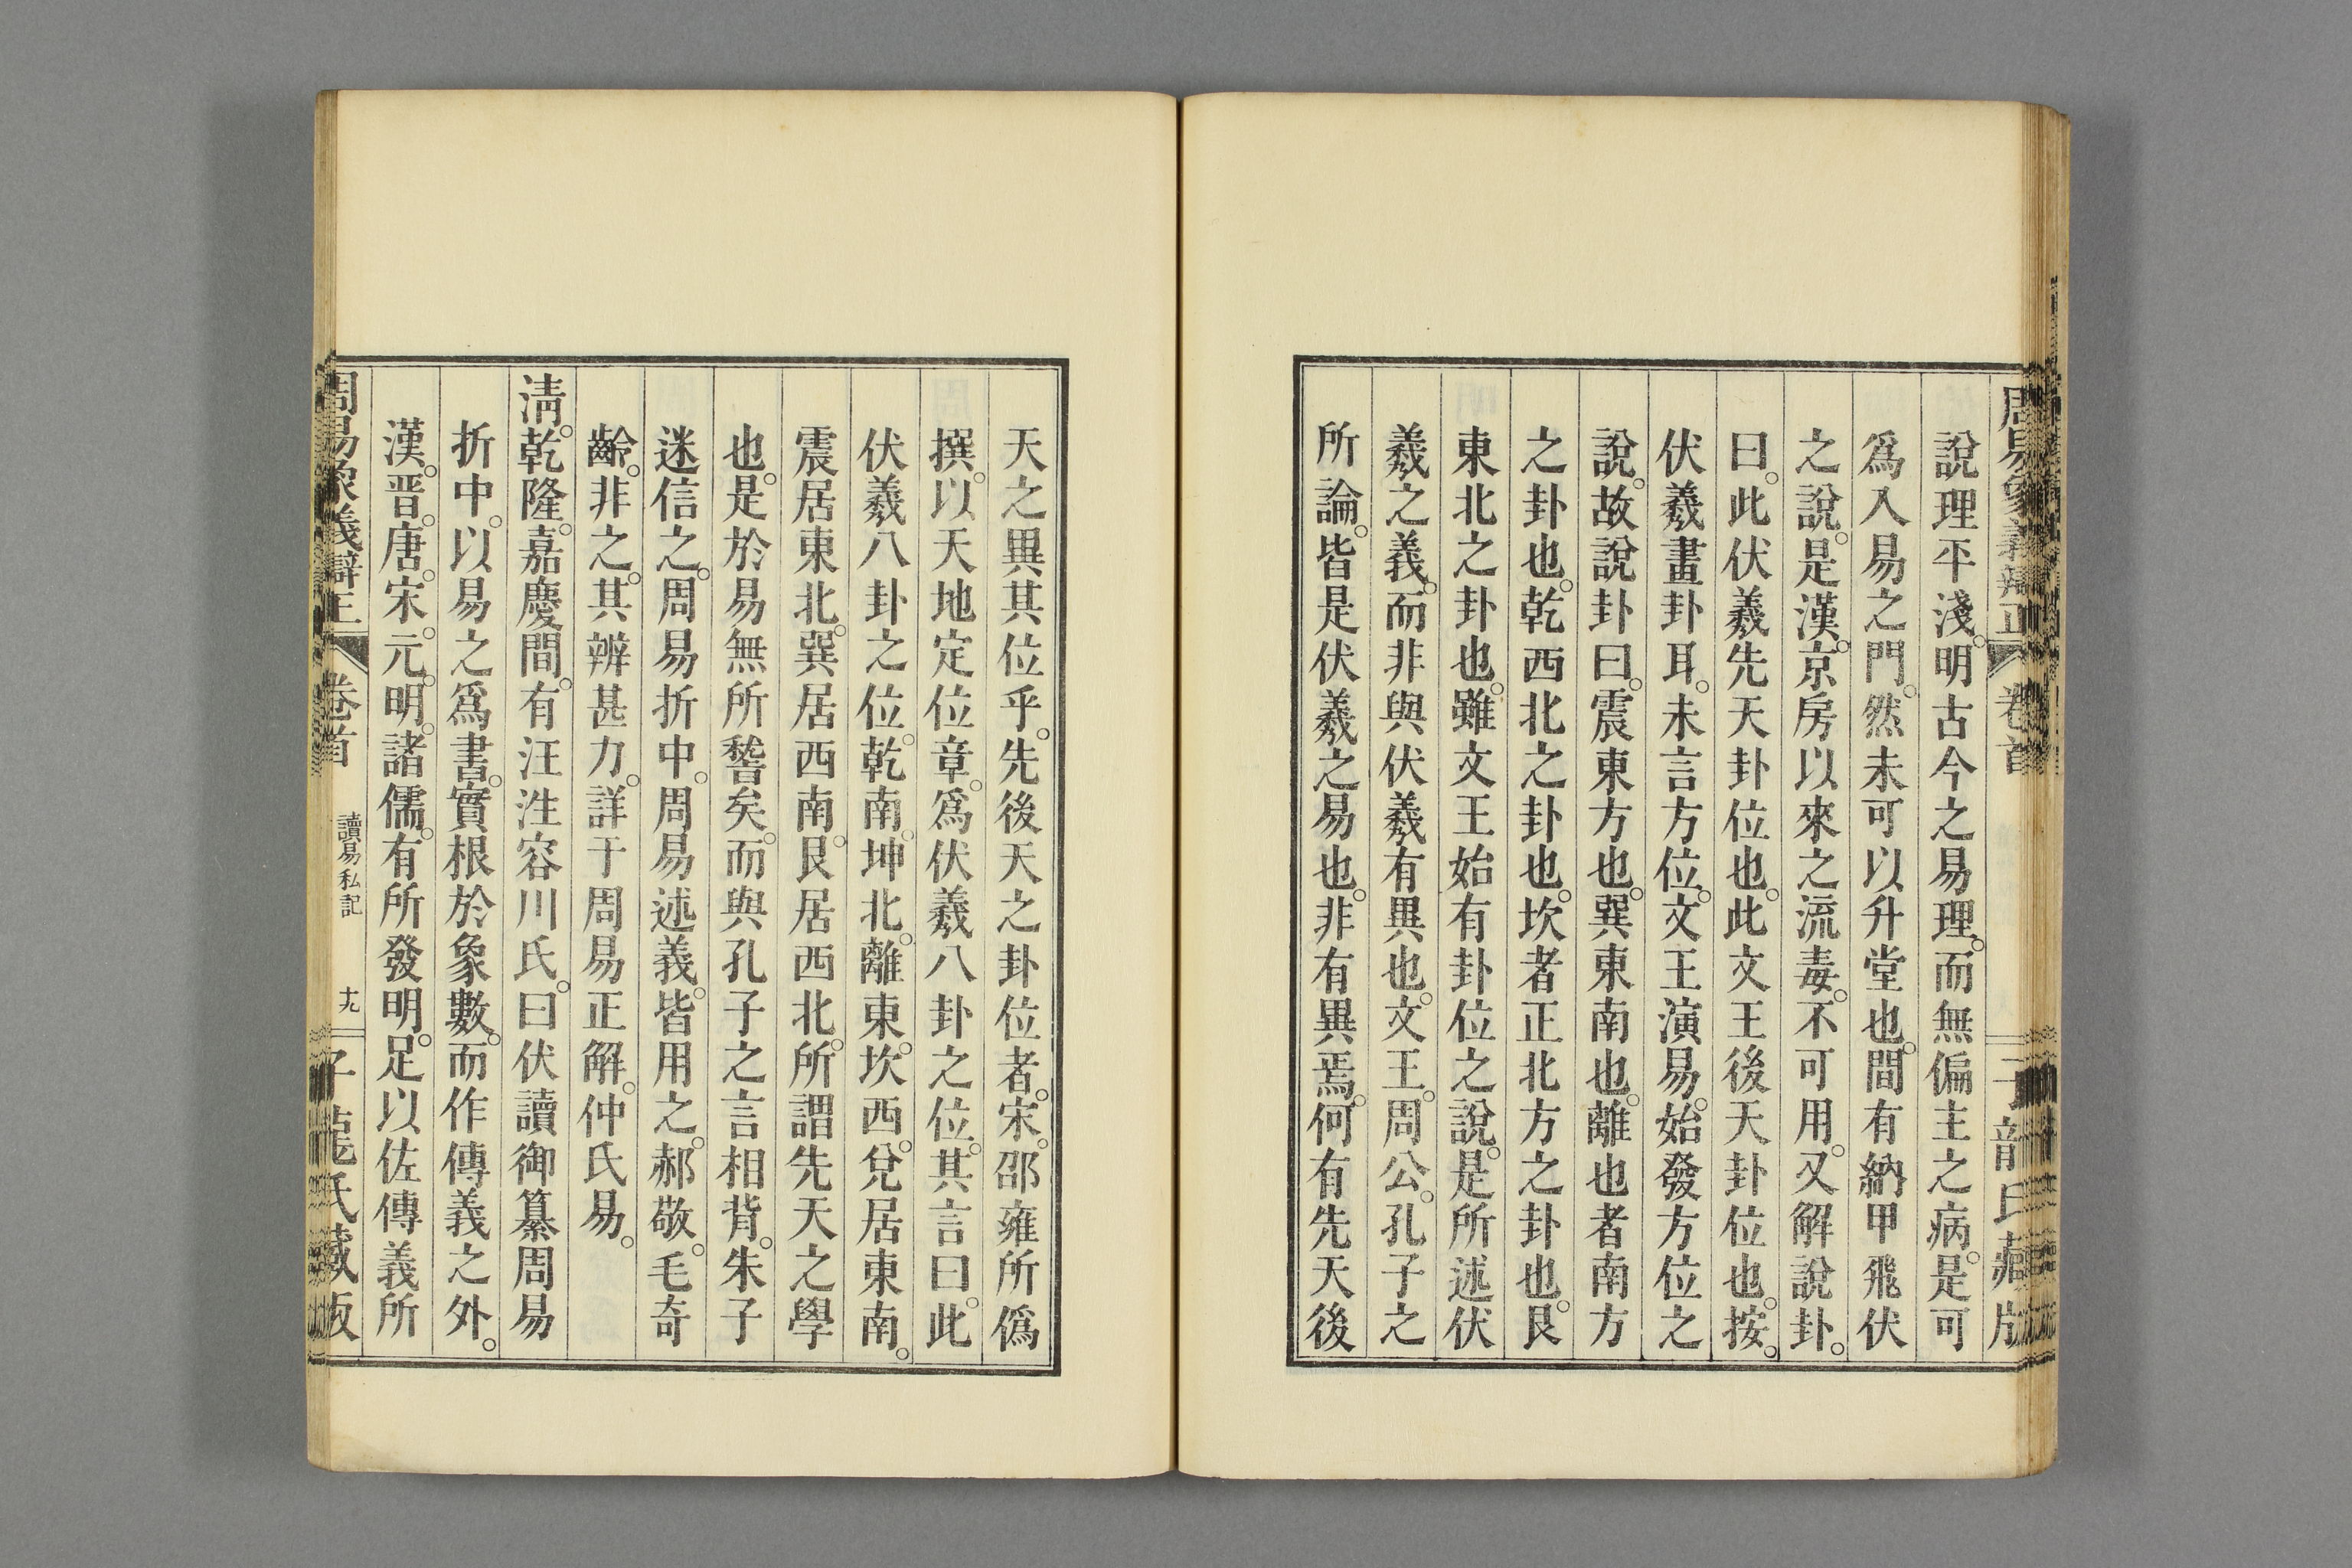 周易象義辯正 卷首 子龍氏藏版
說理平淺。明古今之易理。而無偏主之病。是可
爲入易之門。然未可以升堂也。間有納甲飛伏
之說。是漢。京房以來之流毒。不可用。又解說卦。
曰。此伏羲先天卦位也。此文王後天卦位也。按。
伏羲畫卦耳。未言方位。文王演易。始發方位之
說。故說卦曰。震東方也。巽東南也。離也者南方
之卦也。乾西北之卦也。坎者正北方之卦也。艮
東北之卦也。雖文王始有卦位之說。是所述伏
羲之義。而非與伏羲有異也。文王。周公。孔子之
所論。皆是伏羲之易也。非有異焉。何有先天後
天之異其位乎。先後天之卦位者。宋。邵雍所僞
撰。以天地定位章。爲伏羲八卦之位。其言曰。此
伏羲八卦之位。乾南。坤北。離東。坎西。兌居東南。
震居東北。巽居西南。艮居西北。所謂先天之學
也。是於易無所嵆矣。而與孔子之言相背。朱子
迷信之。周易折中。周易述義。皆用之。郝敬。毛奇
齡。非之。其辨甚力。詳于周易正解。仲氏易。
淸。乾隆。嘉慶間。有汪泩容川氏。曰伏讀御纂周易
折中。以易之爲書。實根於象數。而作傳義之外。
漢。晋。唐。宋。元。明。諸儒。有所發明。足以佐傳義所
周易象義辯正 卷首 讀易私記 十九 子龍氏藏版